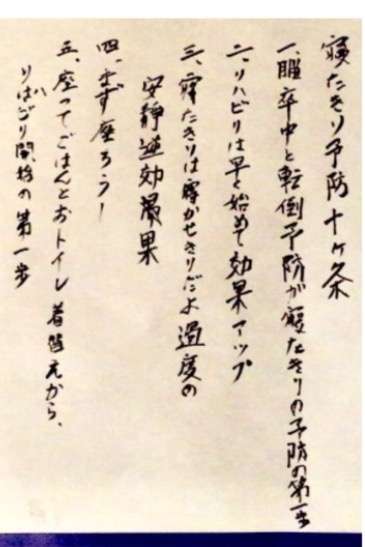 寝たきり予防十ケ条
一、脳卒中と転倒予防が寝たきりの予防の第一歩
二、リハビリは早く始めて効果アップ
三、寝たきりは寝かせきりだよ過度の
安静逆効果
四、まず座ろうー
五、座ってごはんとおトイレ着替えから、
リハビリ開始の第一歩